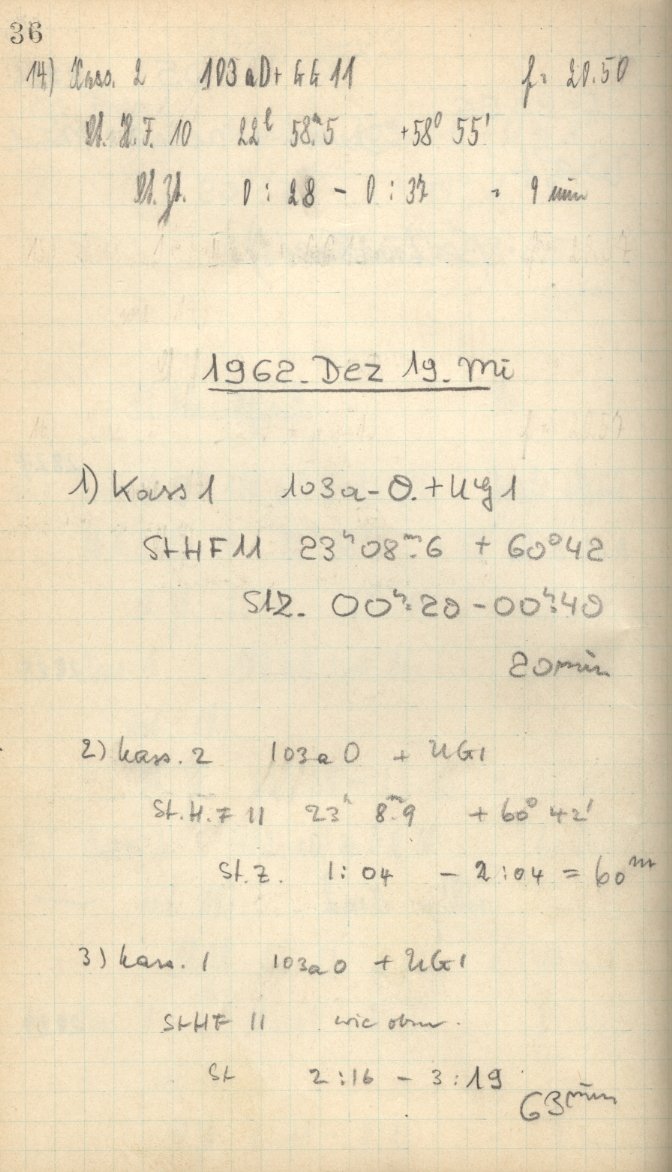 36
14) Kass. 2 103aD+ GG 11 f= 20.50
St. H. F. 10 22h 58m.5 +58° 55'
St. Zt. 0:28 - 0:37 = 9 min
1962. Dez 19. Mi
1) Kass 1 103a-O.+UG1
StHF 11 23h 08m.6 + 60°42
StZ. 00h:20 - 00h:40
20min
2) Kass. 2 103a O + UG1
St.H.F 11 23h 8m.9 + 60° 42'
St.Z. 1:04 - 2:04 = 60m
3) Kass. 1 103a O + UG1
StHF 11 wie oben.
St 2:16 - 3:19
63min